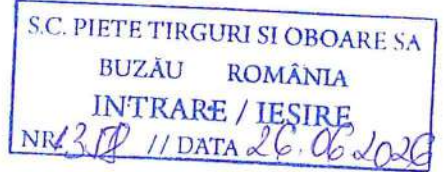 S.C. PIETE TIRGURI SI OBOARE SA
BUZĂU ROMÂNIA
INTRARE / IEȘIRE
NR. // DATA 26.06.2026